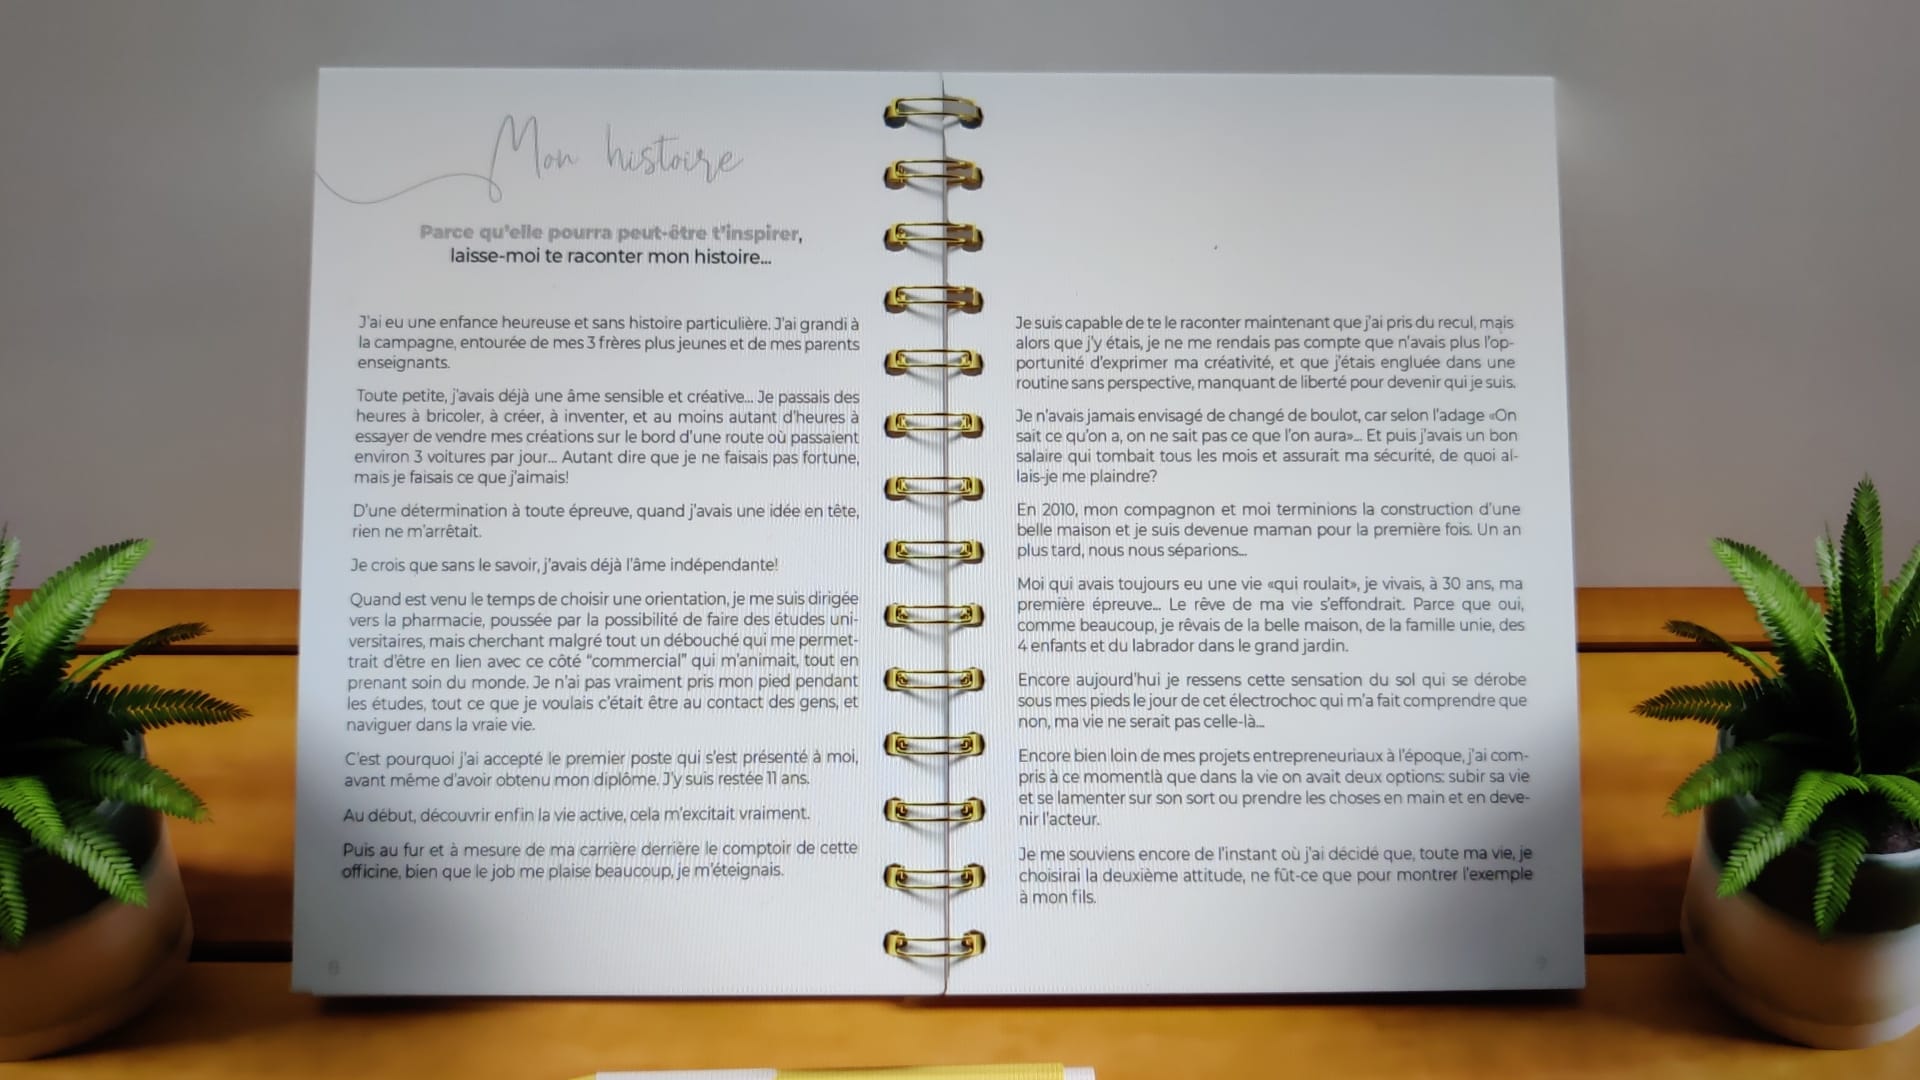 Mon histoire
Parce qu'elle pourra peut-être t'inspirer,
laisse-moi te raconter mon histoire...
J'ai eu une enfance heureuse et sans histoire particulière. J'ai grandi à
la campagne, entourée de mes 3 frères plus jeunes et de mes parents
enseignants.
Toute petite, j'avais déjà une âme sensible et créative... Je passais des
heures à bricoler, à créer, à inventer, et au moins autant d'heures à
essayer de vendre mes créations sur le bord d'une route où passaient
environ 3 voitures par jour... Autant dire que je ne faisais pas fortune,
mais je faisais ce que j'aimais!
D'une détermination à toute épreuve, quand j'avais une idée en tête,
rien ne m'arrêtait.
Je crois que sans le savoir, j'avais déjà l'âme indépendante!
Quand est venu le temps de choisir une orientation, je me suis dirigée
vers la pharmacie, poussée par la possibilité de faire des études uni-
versitaires, mais cherchant malgré tout un débouché qui me permet-
trait d'être en lien avec ce côté "commercial" qui m'animait, tout en
prenant soin du monde. Je n'ai pas vraiment pris mon pied pendant
les études, tout ce que je voulais c'était être au contact des gens, et
naviguer dans la vraie vie.
C'est pourquoi j'ai accepté le premier poste qui s'est présenté à moi,
avant même d'avoir obtenu mon diplôme. J'y suis restée 11 ans.
Au début, découvrir enfin la vie active, cela m'excitait vraiment.
Puis au fur et à mesure de ma carrière derrière le comptoir de cette
officine, bien que le job me plaise beaucoup, je m'éteignais.
8
Je suis capable de te le raconter maintenant que j'ai pris du recul, mais
alors que j'y étais, je ne me rendais pas compte que n'avais plus l'op-
portunité d'exprimer ma créativité, et que j'étais engluée dans une
routine sans perspective, manquant de liberté pour devenir qui je suis.
Je n'avais jamais envisagé de changé de boulot, car selon l'adage «On
sait ce qu'on a, on ne sait pas ce que l'on aura»... Et puis j'avais un bon
salaire qui tombait tous les mois et assurait ma sécurité, de quoi al-
lais-je me plaindre?
En 2010, mon compagnon et moi terminions la construction d'une
belle maison et je suis devenue maman pour la première fois. Un an
plus tard, nous nous séparions...
Moi qui avais toujours eu une vie «qui roulait», je vivais, à 30 ans, ma
première épreuve... Le rêve de ma vie s'effondrait. Parce que oui,
comme beaucoup, je rêvais de la belle maison, de la famille unie, des
4 enfants et du labrador dans le grand jardin.
Encore aujourd'hui je ressens cette sensation du sol qui se dérobe
sous mes pieds le jour de cet électrochoc qui m'a fait comprendre que
non, ma vie ne serait pas celle-là...
Encore bien loin de mes projets entrepreneuriaux à l'époque, j'ai com-
pris à ce momentlà que dans la vie on avait deux options: subir sa vie
et se lamenter sur son sort ou prendre les choses en main et en deve-
nir l'acteur.
Je me souviens encore de l'instant où j'ai décidé que, toute ma vie, je
choisirai la deuxième attitude, ne fût-ce que pour montrer l'exemple
à mon fils.
9